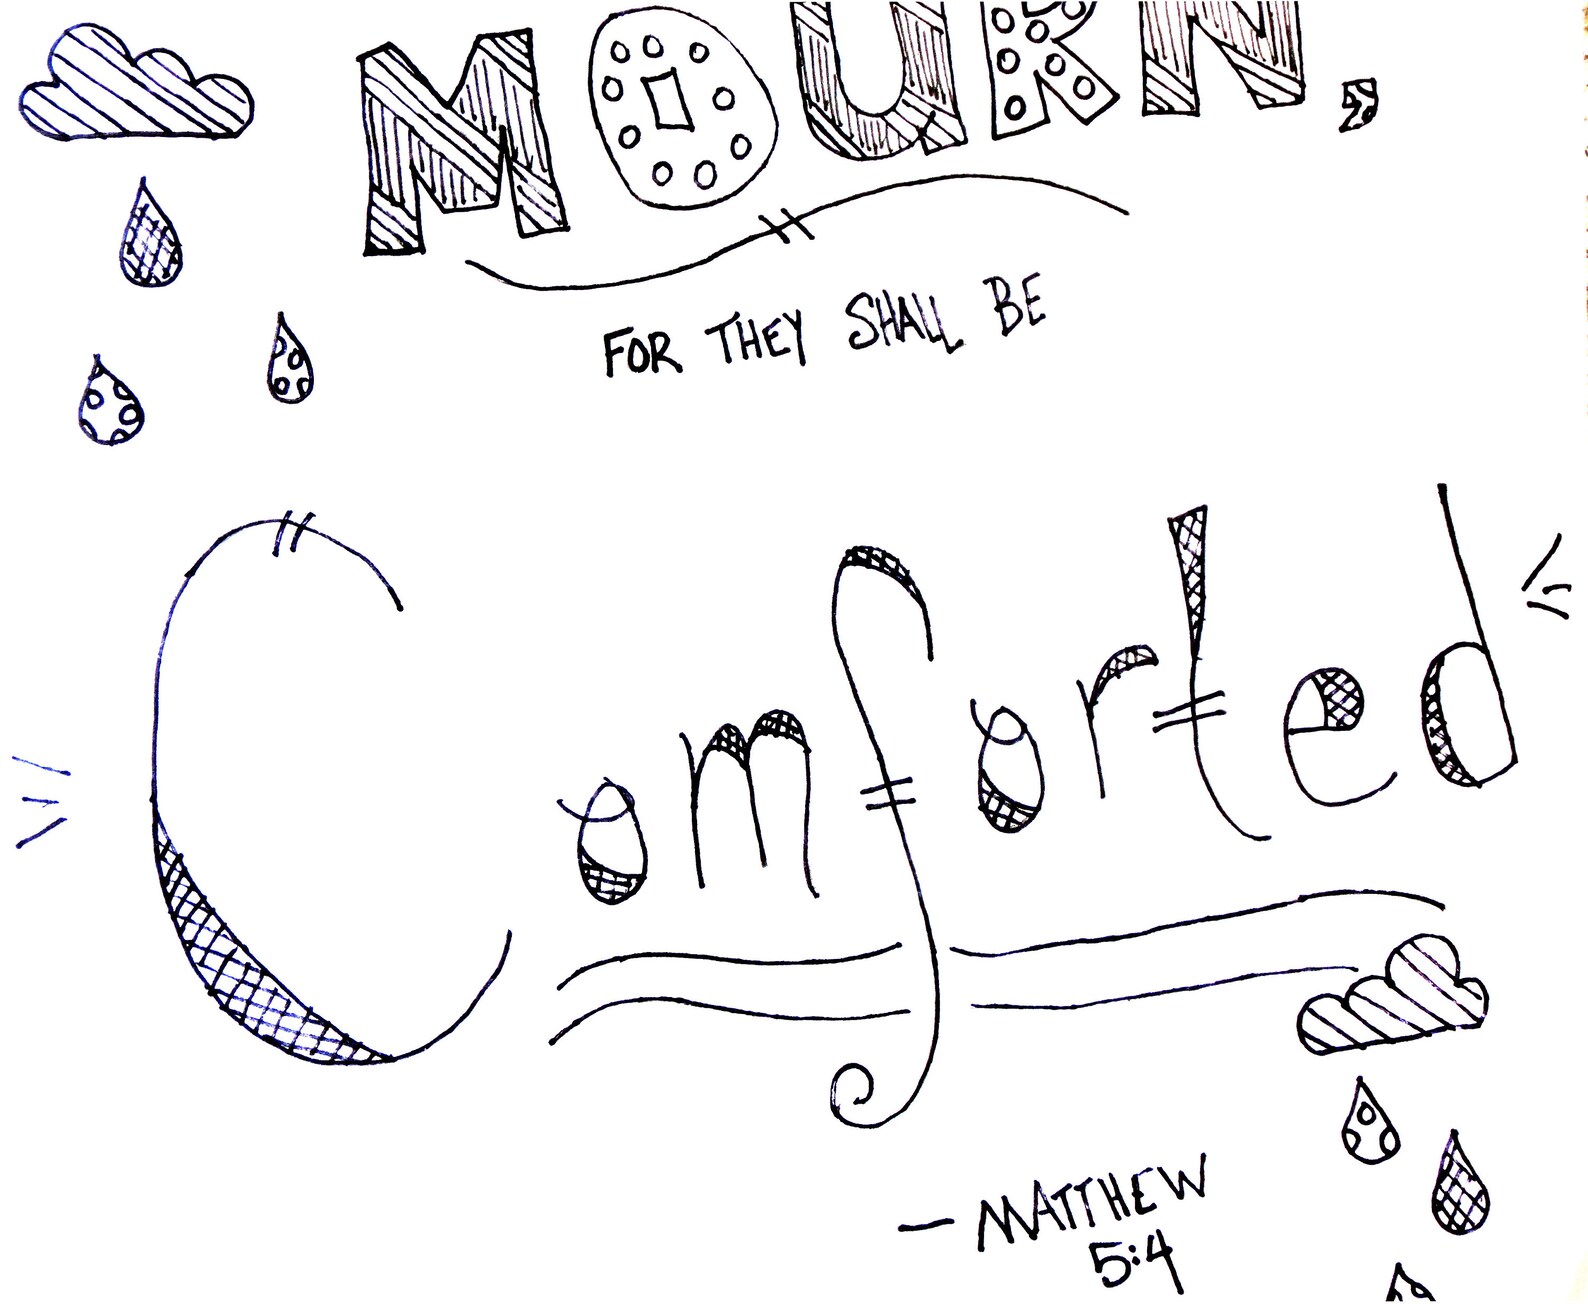 MOURN,
FOR THEY SHALL BE
Comforted
— MATTHEW
5:4